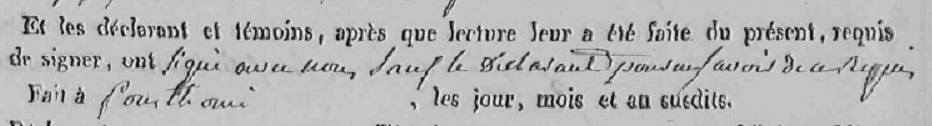 Et les déclarant et témoins, après que lecture leur a été faite du présent, requis
de signer, ont signé avec nous, sauf le déclarant pour ne savoir de ce requis,
Fait à , les jour, mois et an susdits.